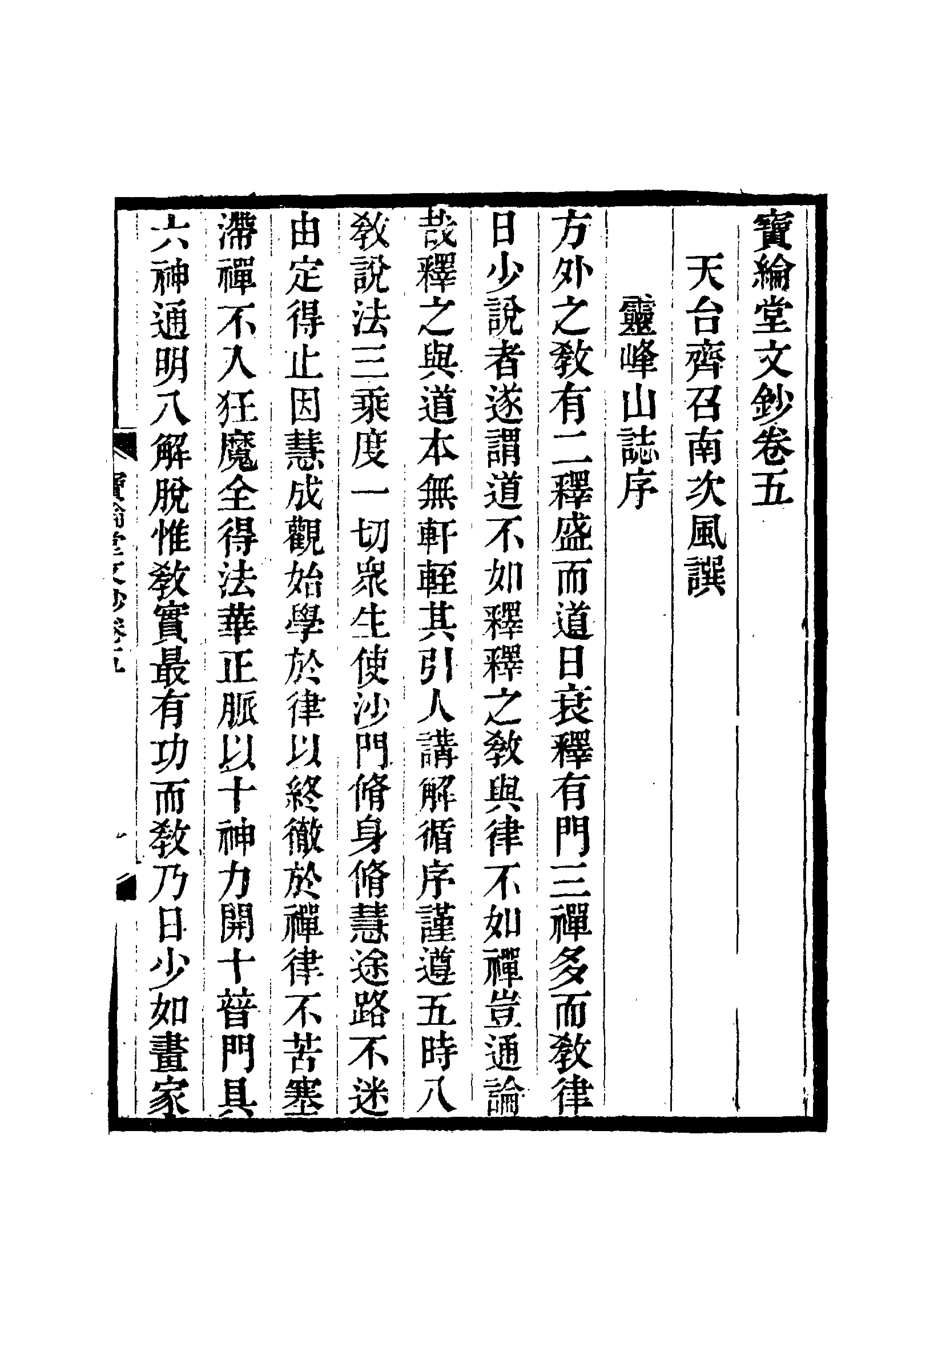 寶綸堂文鈔卷五
天台齊召南次風譔
靈峰山誌序
方外之敎有二釋盛而道日衰釋有門三禪多而敎律
日少說者遂謂道不如釋釋之敎與律不如禪豈通論
哉釋之與道本無軒輊其引人講解循序謹遵五時八
敎說法三乘度一切衆生使沙門脩身脩慧途路不迷
由定得止因慧成觀始學於律以終徹於禪律不苦塞
滯禪不入狂魔全得法華正脈以十神力開十普門具
六神通明八解脫惟敎實最有功而敎乃日少如畫家
寶綸堂文鈔卷五